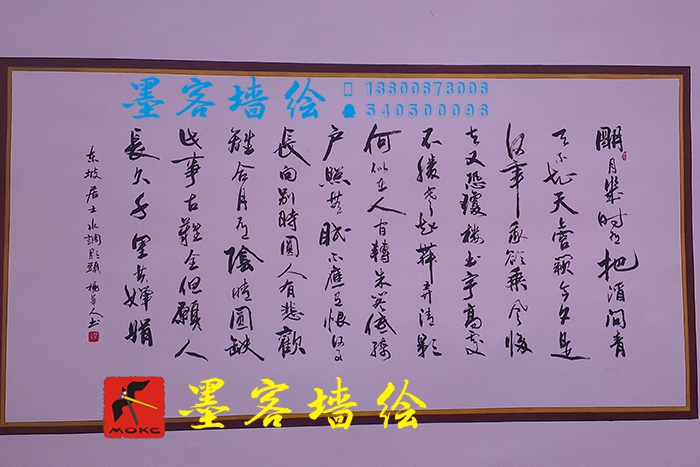 墨客墙绘
明月幾時有把酒問青
天不知天宮闕今夕是
何年我欲乘風歸
去又恐瓊樓玉宇高處
不勝寒起舞弄清影
何似在人間轉朱閣低綺
戶照無眠不應有恨何事
長向別時圓人有悲歡
離合月有陰晴圓缺
此事古難全但願人
長久千里共嬋娟
东坡居士水調歌頭
MOKE
墨客墙绘